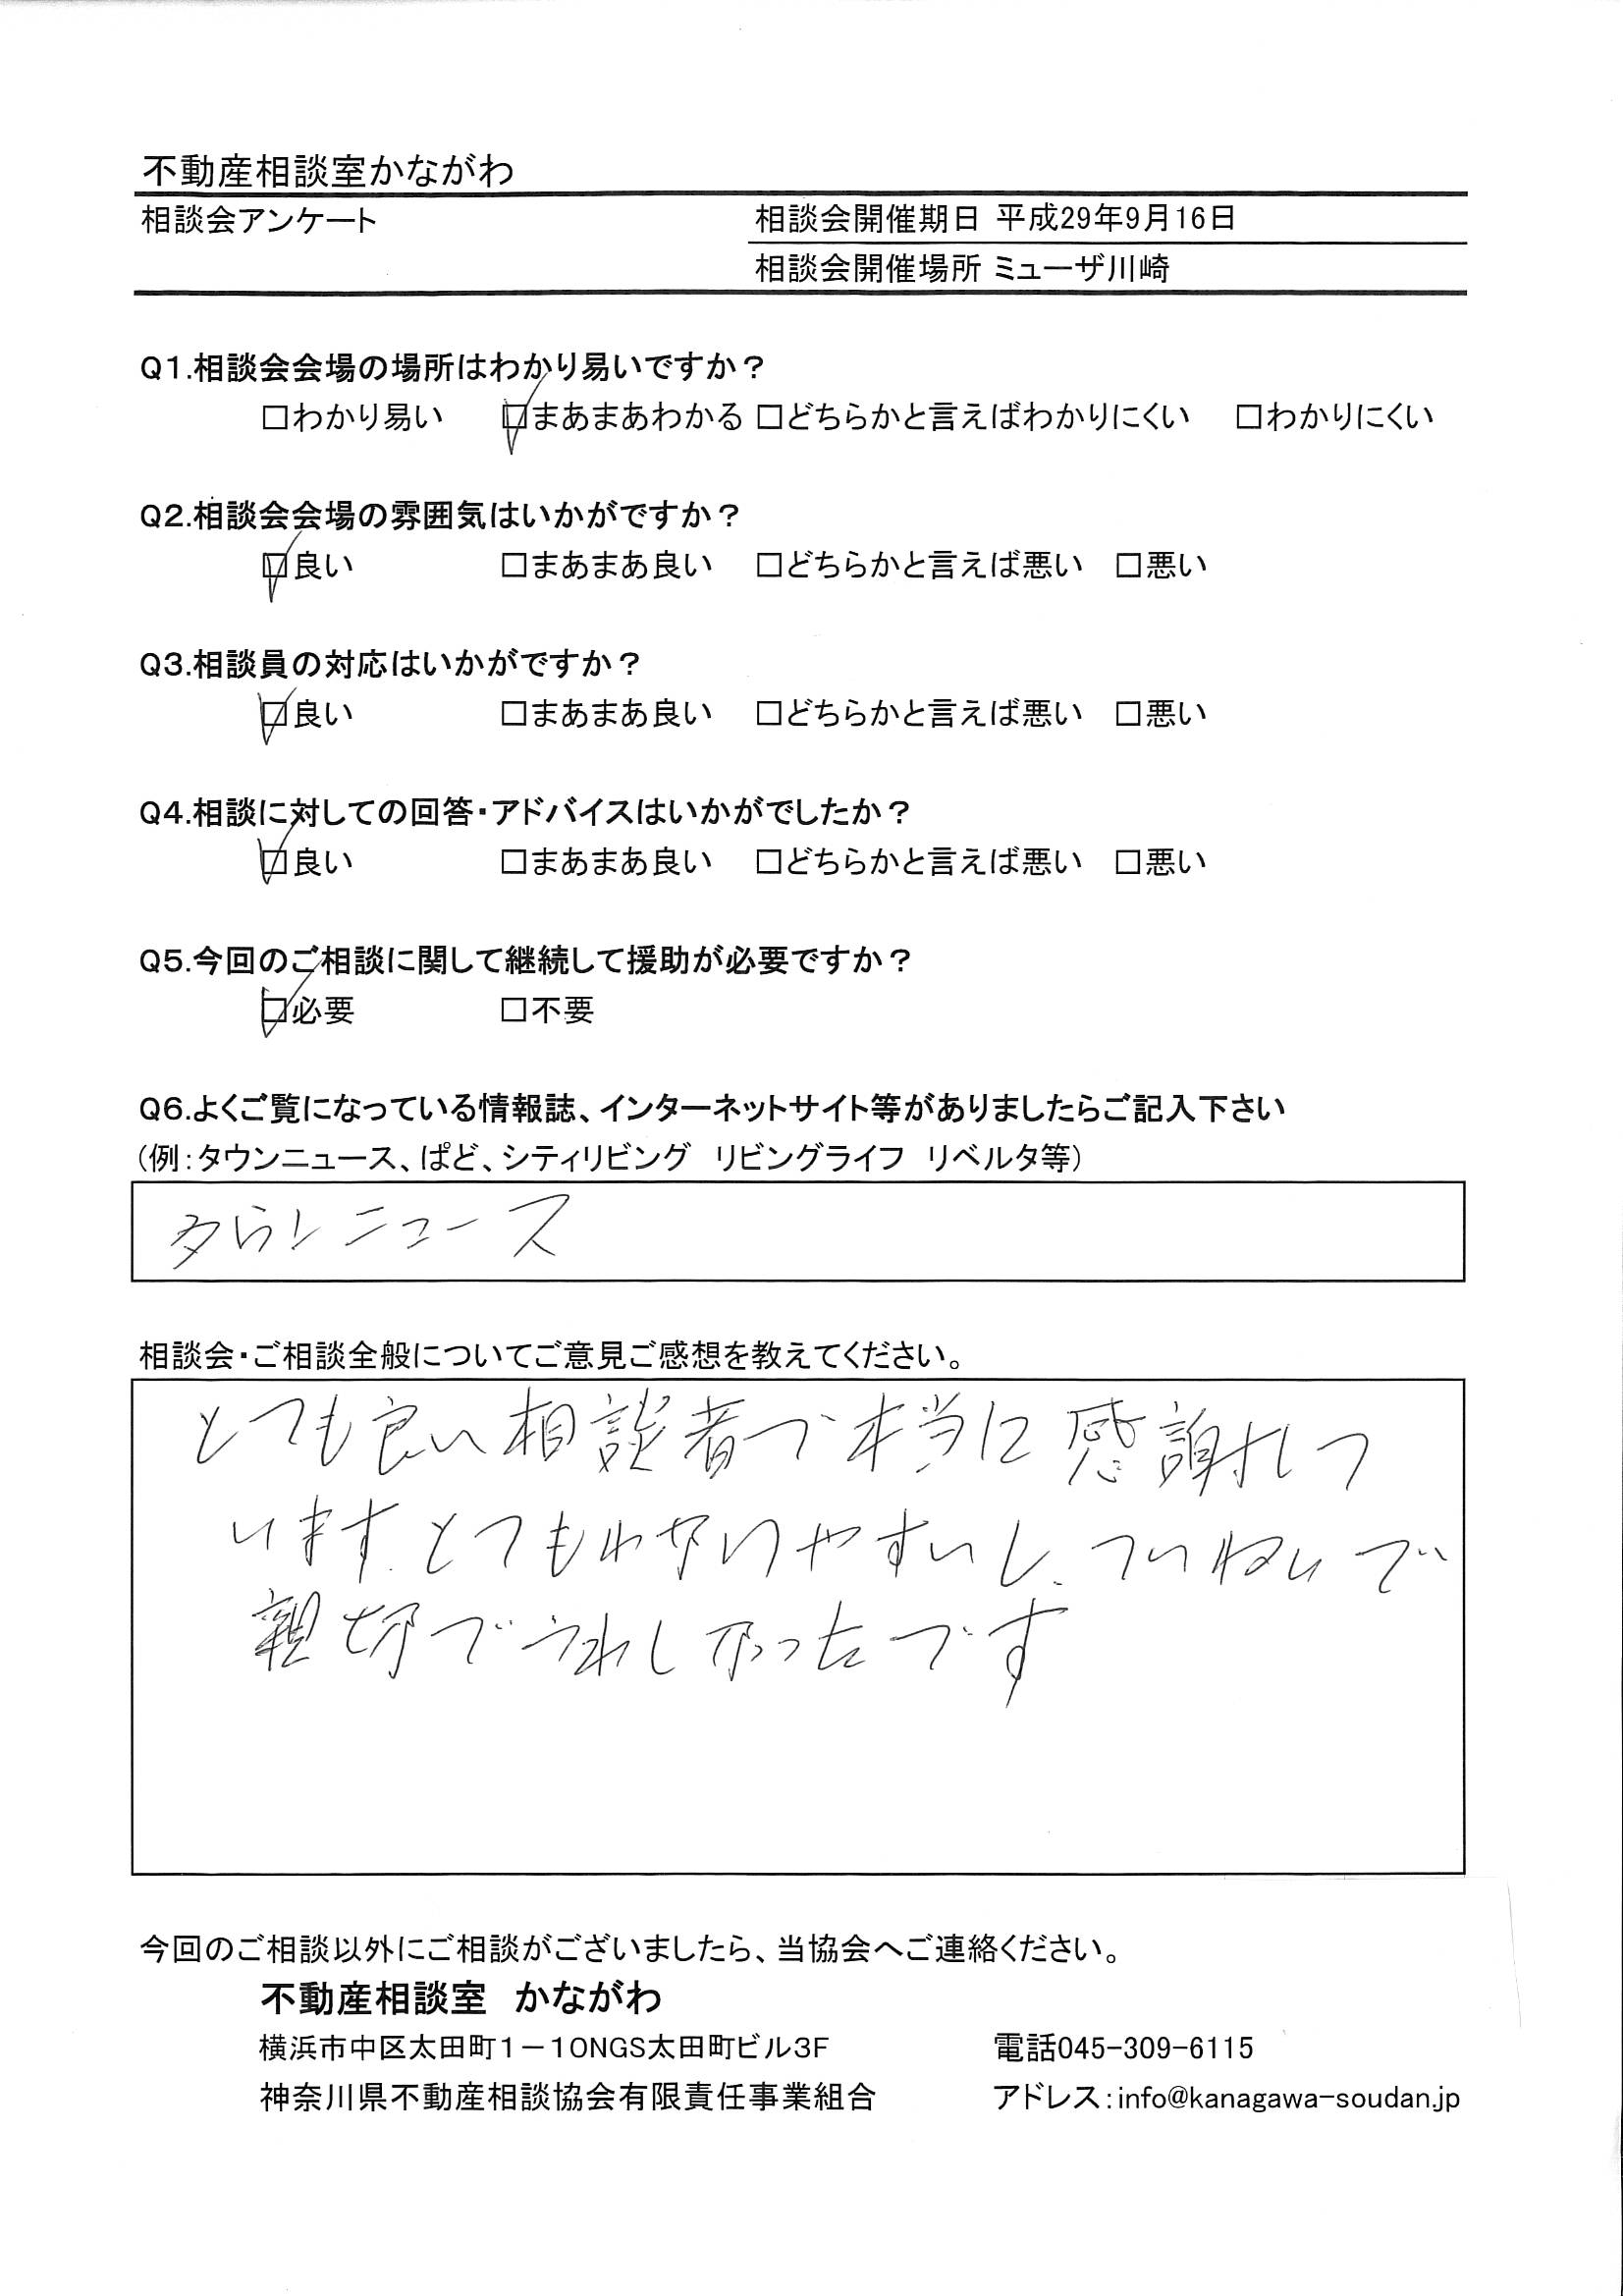 不動産相談室かながわ
相談会アンケート
相談会開催期日 平成29年9月16日
相談会開催場所 ミューザ川崎
Q1.相談会会場の場所はわかり易いですか？
□わかり易い ☑まあまあわかる □どちらかと言えばわかりにくい □わかりにくい
Q2.相談会会場の雰囲気はいかがですか？
☑良い □まあまあ良い □どちらかと言えば悪い □悪い
Q3.相談員の対応はいかがですか？
☑良い □まあまあ良い □どちらかと言えば悪い □悪い
Q4.相談に対しての回答・アドバイスはいかがでしたか？
☑良い □まあまあ良い □どちらかと言えば悪い □悪い
Q5.今回のご相談に関して継続して援助が必要ですか？
☑必要 □不要
Q6.よくご覧になっている情報誌、インターネットサイト等がありましたらご記入下さい
(例：タウンニュース、ぱど、シティリビング リビングライフ リベルタ等)
タウンニュース
相談会・ご相談全般についてご意見ご感想を教えてください。
とても良い相談者で本当に感謝して
います。とてもわかりやすいし、ていねいで
親切でうれしかったです
今回のご相談以外にご相談がございましたら、当協会へご連絡ください。
不動産相談室 かながわ
横浜市中区太田町1－10NGS太田町ビル3F
電話045-309-6115
神奈川県不動産相談協会有限責任事業組合
アドレス：info@kanagawa-soudan.jp